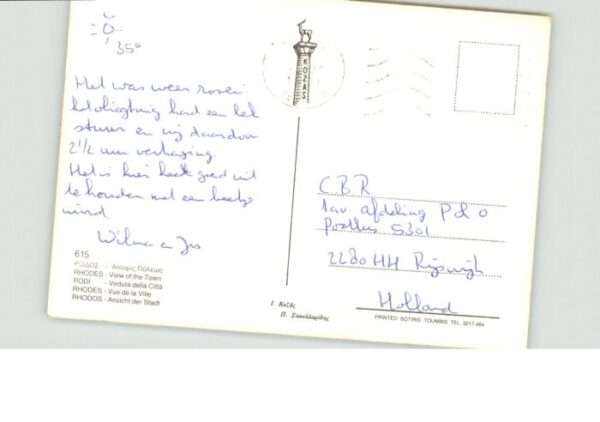 35°
Het was weer
het vliegtuig had een lek
sturen en wij daardoor
2 1/2 uur vertraging
Het is hier heet goed uit
te houden met een beetje
wind
Wilma en Jos
615
ΡΟΔΟΣ - Άποψις Πόλεως
RHODES - View of the Town
RODI - Veduta della Città
RHODES - Vue de la Ville
RHODOS - Ansicht der Stadt
KOZAS
CBR
tav afdeling P & O
Postbus 5301
2280 HH Rijswijk
Holland
PRINTED SOTIRIS TOUMBIS TEL.